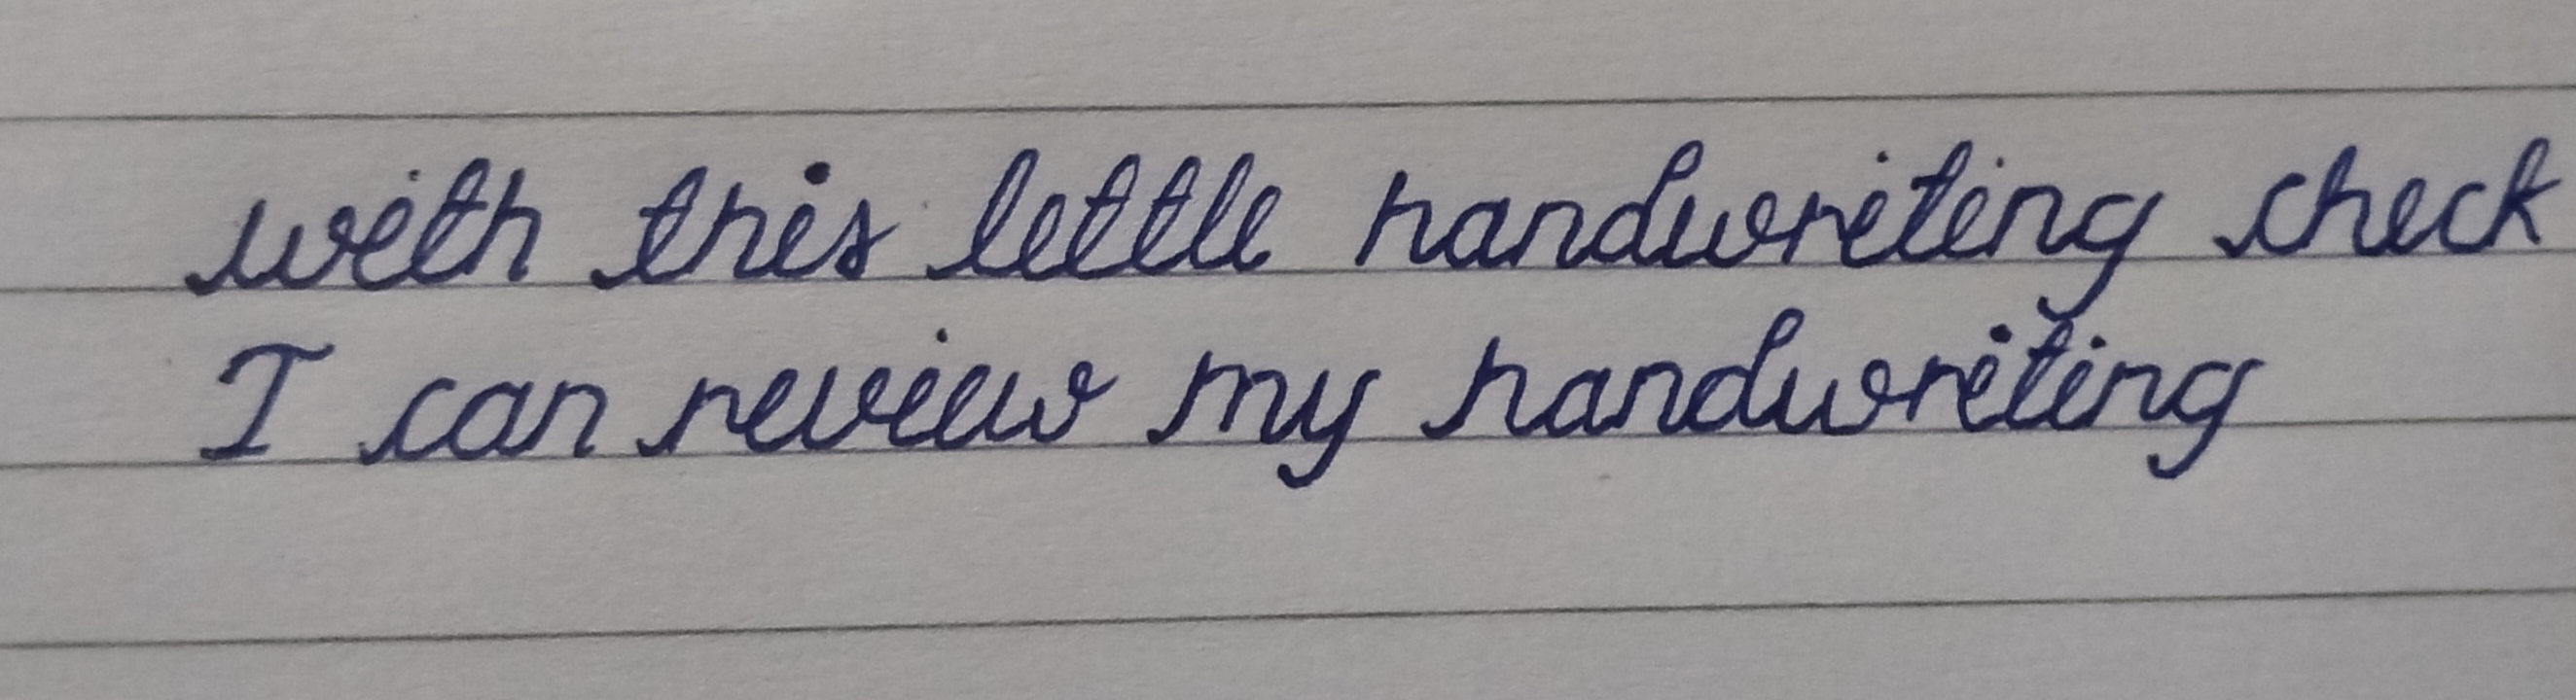 with this little handwriting check
I can review my handwriting